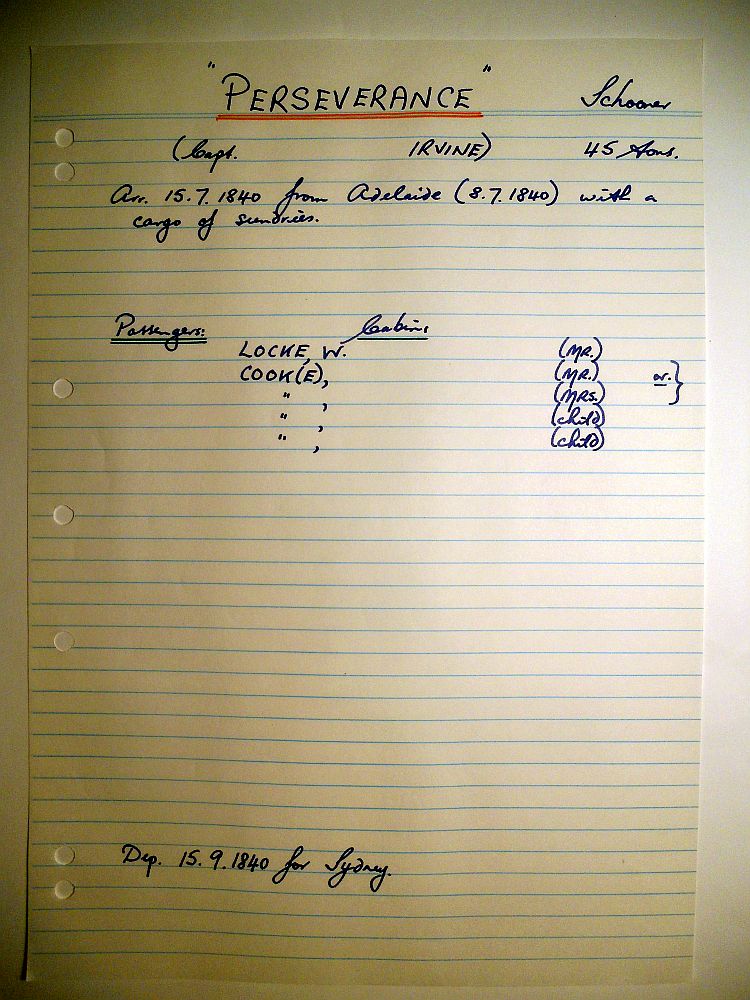 "PERSEVERANCE" Schooner
(Capt. IRVINE) 45 tons.
Arr. 15.7.1840 from Adelaide (8.7.1840) with a
cargo of sundries.
Passengers: Cabin:
LOCKE, W. (MR.)
COOK(E), (MR.) or. }
" , (MRS.)
" , (child)
" , (child)
Dep. 15.9.1840 for Sydney.